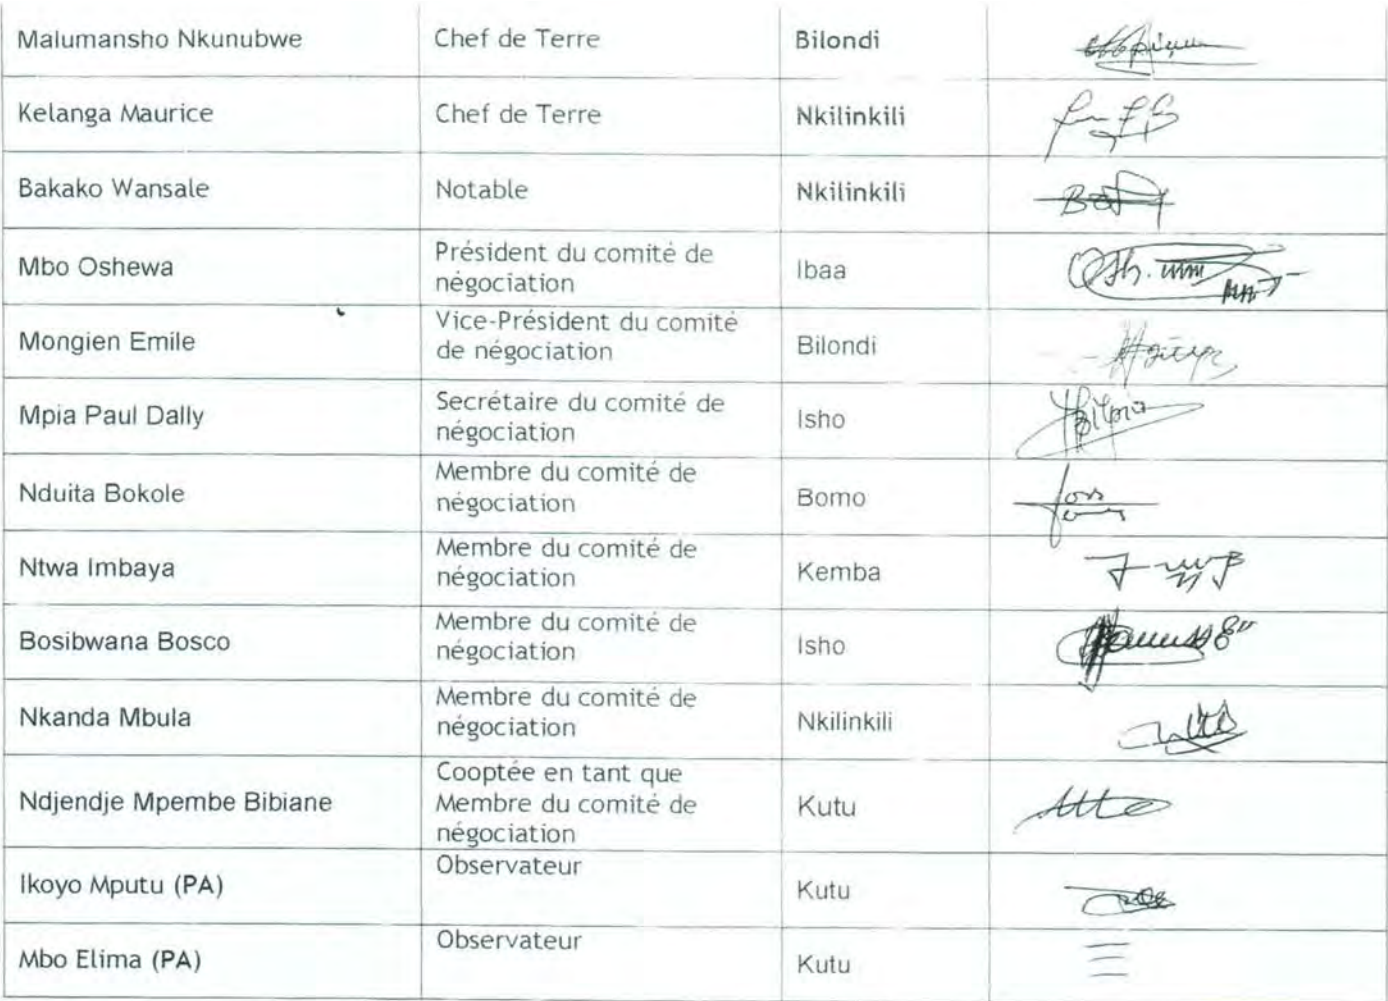 Malumansho Nkunubwe Chef de Terre Bilondi
Kelanga Maurice Chef de Terre Nkilinkili
Bakako Wansale Notable Nkilinkili
Mbo Oshewa Président du comité de
négociation Ibaa
Mongien Emile Vice-Président du comité
de négociation Bilondi
Mpia Paul Dally Secrétaire du comité de
négociation Isho
Nduita Bokole Membre du comité de
négociation Bomo
Ntwa Imbaya Membre du comité de
négociation Kemba
Bosibwana Bosco Membre du comité de
négociation Isho
Nkanda Mbula Membre du comité de
négociation Nkilinkili
Ndjendje Mpembe Bibiane Cooptée en tant que
Membre du comité de
négociation Kutu
Ikoyo Mputu (PA) Observateur Kutu
Mbo Elima (PA) Observateur Kutu